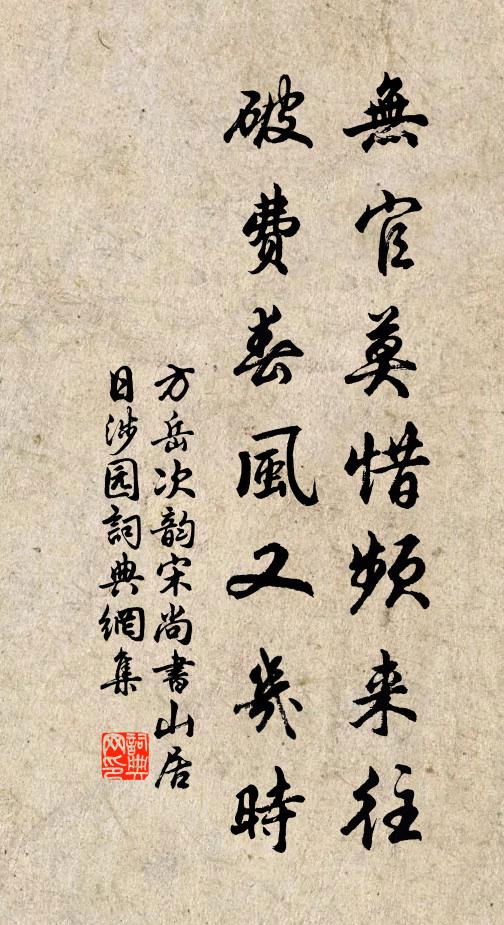 無官莫惜頻来往
破費春風又幾時
方岳次韵宋尚書山居
日涉园詞典網集
詞典网印